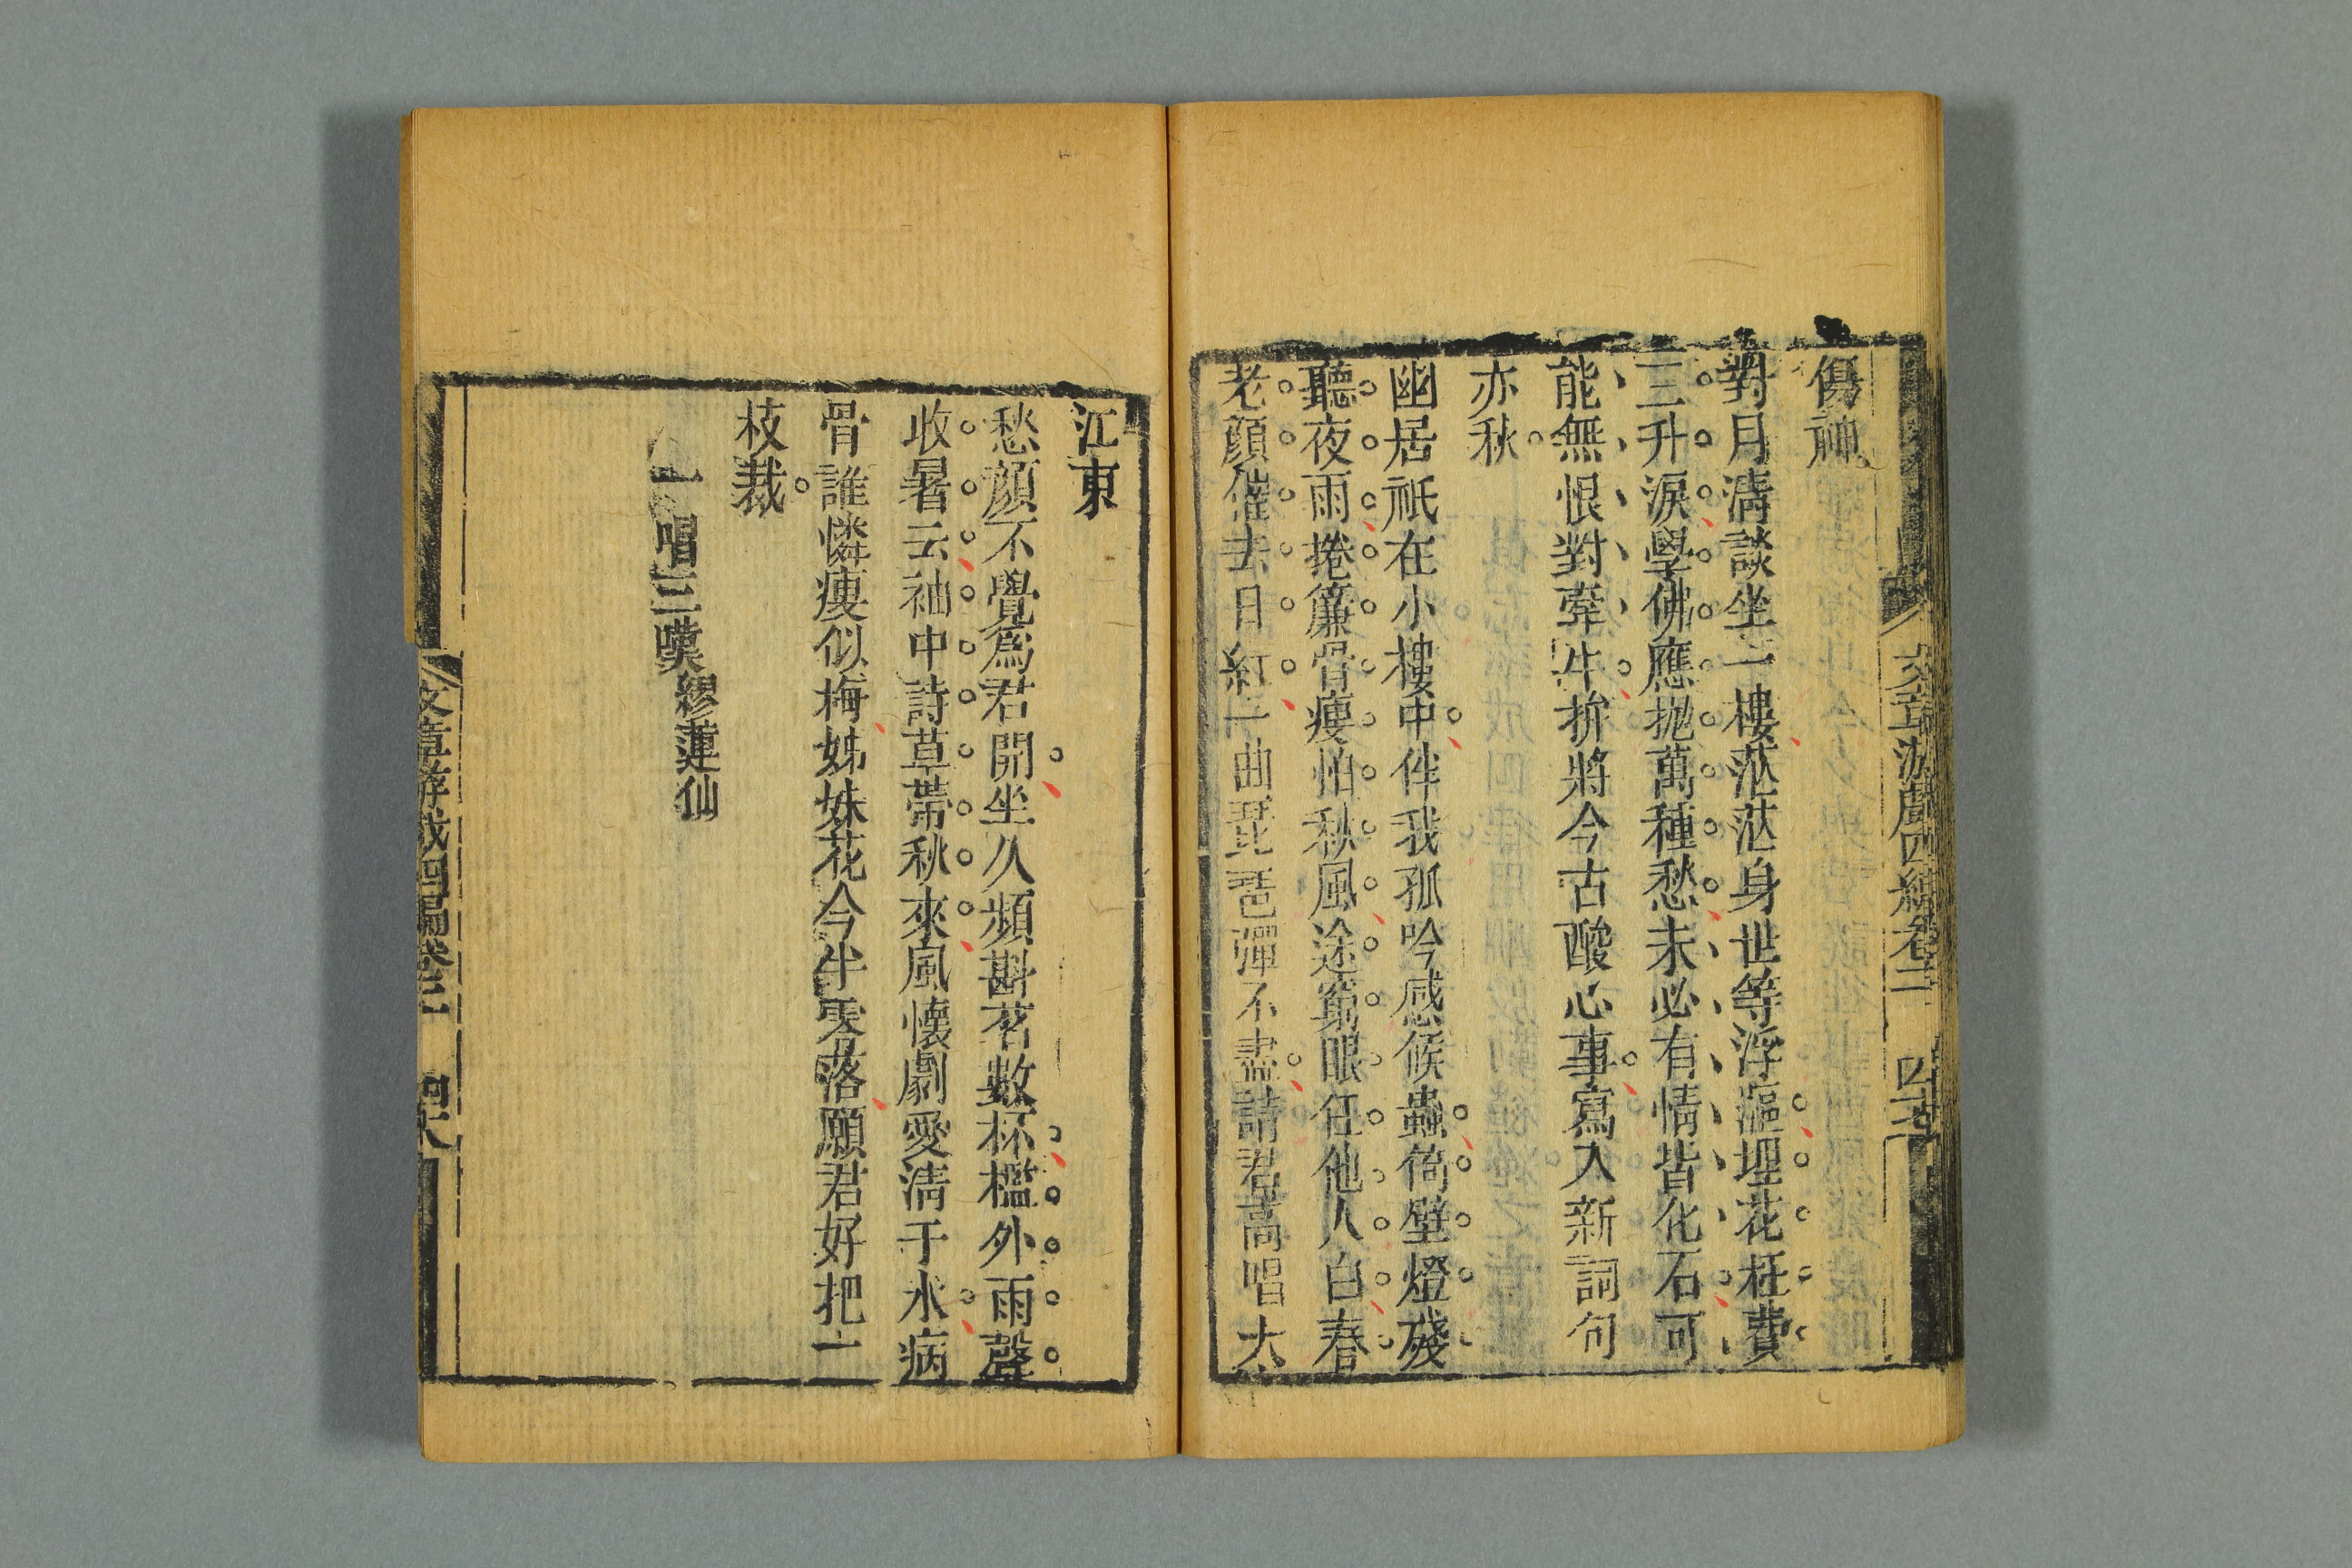 傷神
對月清談坐一樓茫茫身世等浮漚埋花枉費
三升淚學佛應拋萬種愁未必有情皆化石可
能無恨對牽牛拚將今古酸心事寫入新詞句
亦秋
幽居祇在小樓中伴我孤吟感候蟲倚壁燈殘
聽夜雨捲簾骨瘦怕秋風途窮眼任他人白春
老顏催去日紅一曲琵琶彈不盡請君高唱大
文章游戲四編卷三
江東
愁顏不覺為君開坐久頻斟茗數杯檻外雨聲
收暑去袖中詩草帶秋來風懷劇愛清于水病
骨誰憐瘦似梅姊妹花今半零落願君好把一
枝裁
一唱三嘆 繆蓮仙
文章游戲四編卷三